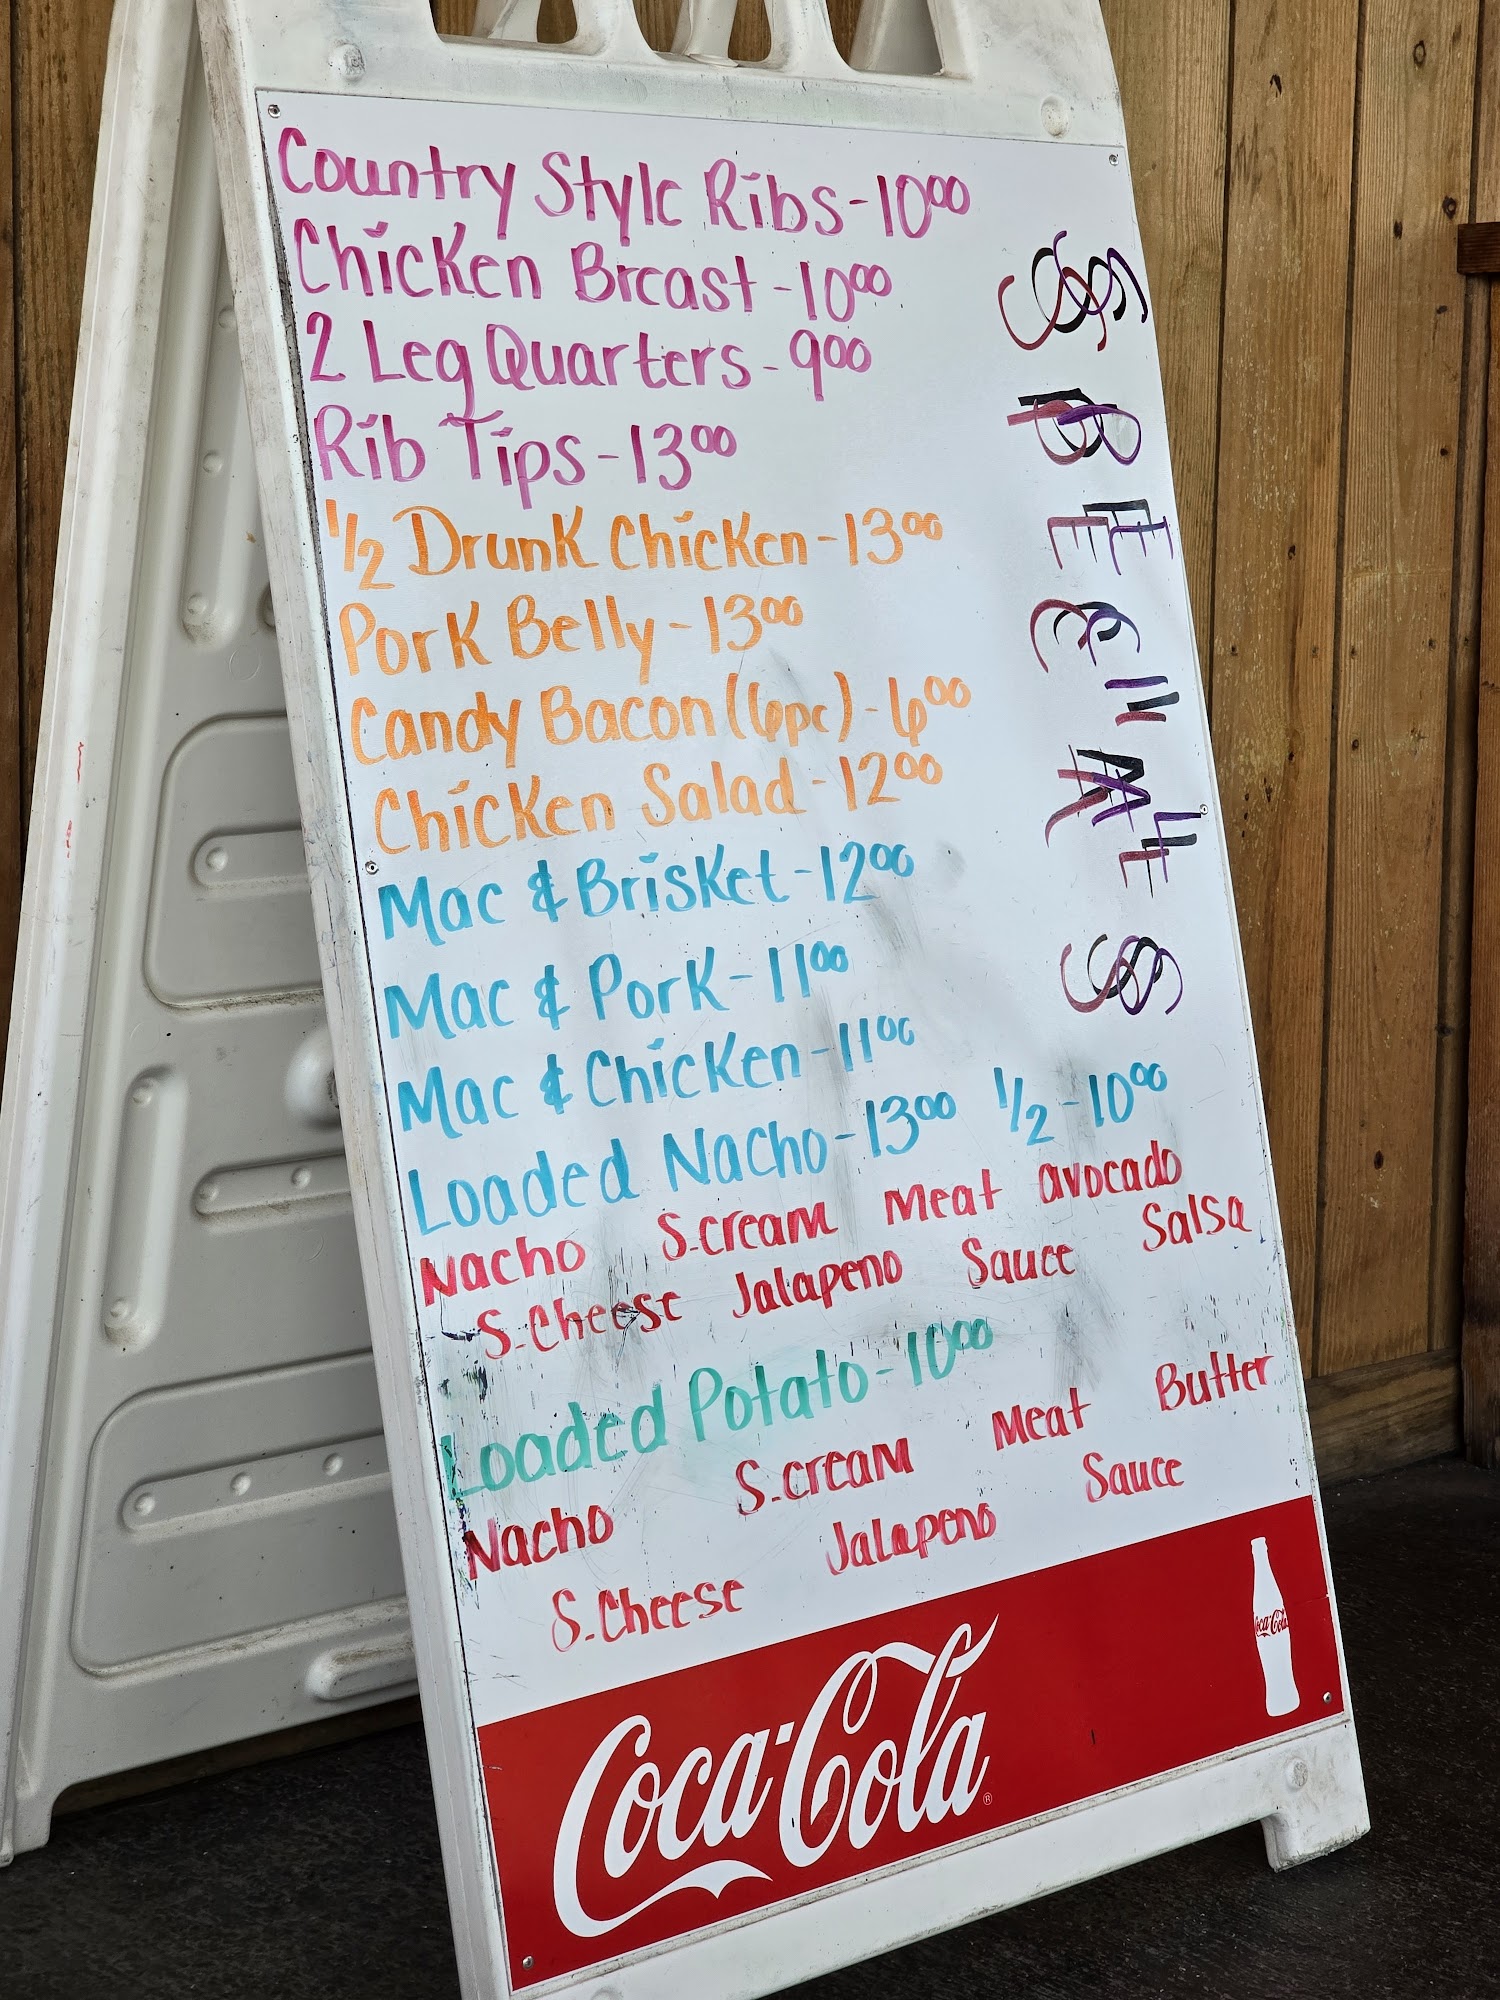 Country Style Ribs - 10⁰⁰
Chicken Breast - 10⁰⁰
2 Leg Quarters - 9⁰⁰
Rib Tips - 13⁰⁰
1/2 Drunk Chicken - 13⁰⁰
Pork Belly - 13⁰⁰
Candy Bacon (6pc) - 6⁰⁰
Chicken Salad - 12⁰⁰
Mac & Brisket - 12⁰⁰
Mac & Pork - 11⁰⁰
Mac & Chicken - 11⁰⁰
Loaded Nacho - 13⁰⁰ 1/2 - 10⁰⁰
Nacho S.Cream Meat avocado
S.Cheese Jalapeno Sauce Salsa
Loaded Potato - 10⁰⁰
Nacho S.Cream Meat Butter
S.Cheese Jalapeno Sauce
SPECIALS
Coca-Cola®
Coca-Cola